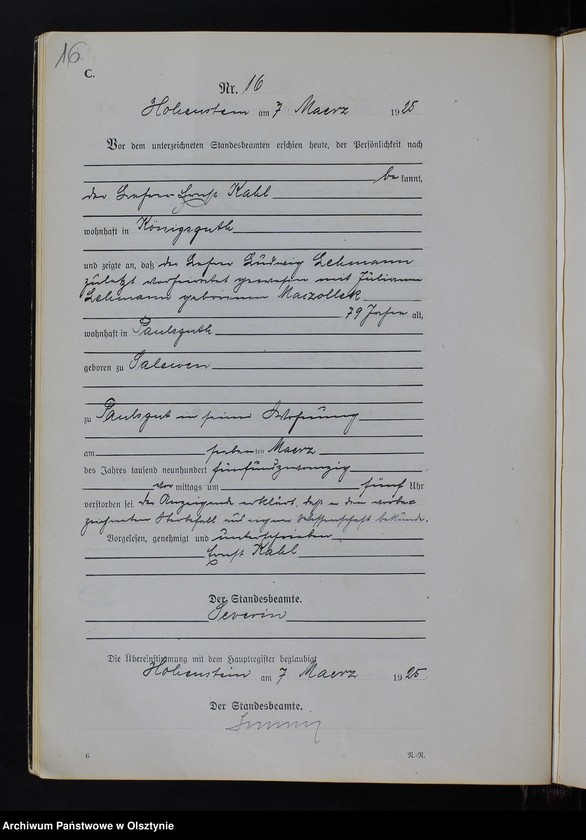 16
C.
Nr. 16
Hohenstein am 7 Maerz 1925
Vor dem unterzeichneten Standesbeamten erschien heute, der Persönlichkeit nach
be kannt,
der Ernst Kahl
wohnhaft in Königsguth
und zeigte an, daß der Ludwig Lehmann
zuletzt verheiratet gewesen mit Juliane
Lehmann geborenen Maczollek
79 Jahre alt,
wohnhaft in Paulsguth
geboren zu Salewen
zu Paulsgut in seiner Wohnung
am siebenten Maerz
des Jahres tausend neunhundert fünfundzwanzig
vor mittags um fünf Uhr
verstorben sei. Der Anzeigende erklärt, daß er den vorbe-
zeichneten Sterbefall aus eigener Wissenschaft bekunde.
Vorgelesen, genehmigt und unterschrieben
Ernst Kahl
Der Standesbeamte.
Severin
Die Übereinstimmung mit dem Hauptregister beglaubigt
Hohenstein am 7 Maerz 1925.
Der Standesbeamte.
6
N.-N.
Archiwum Państwowe w Olsztynie